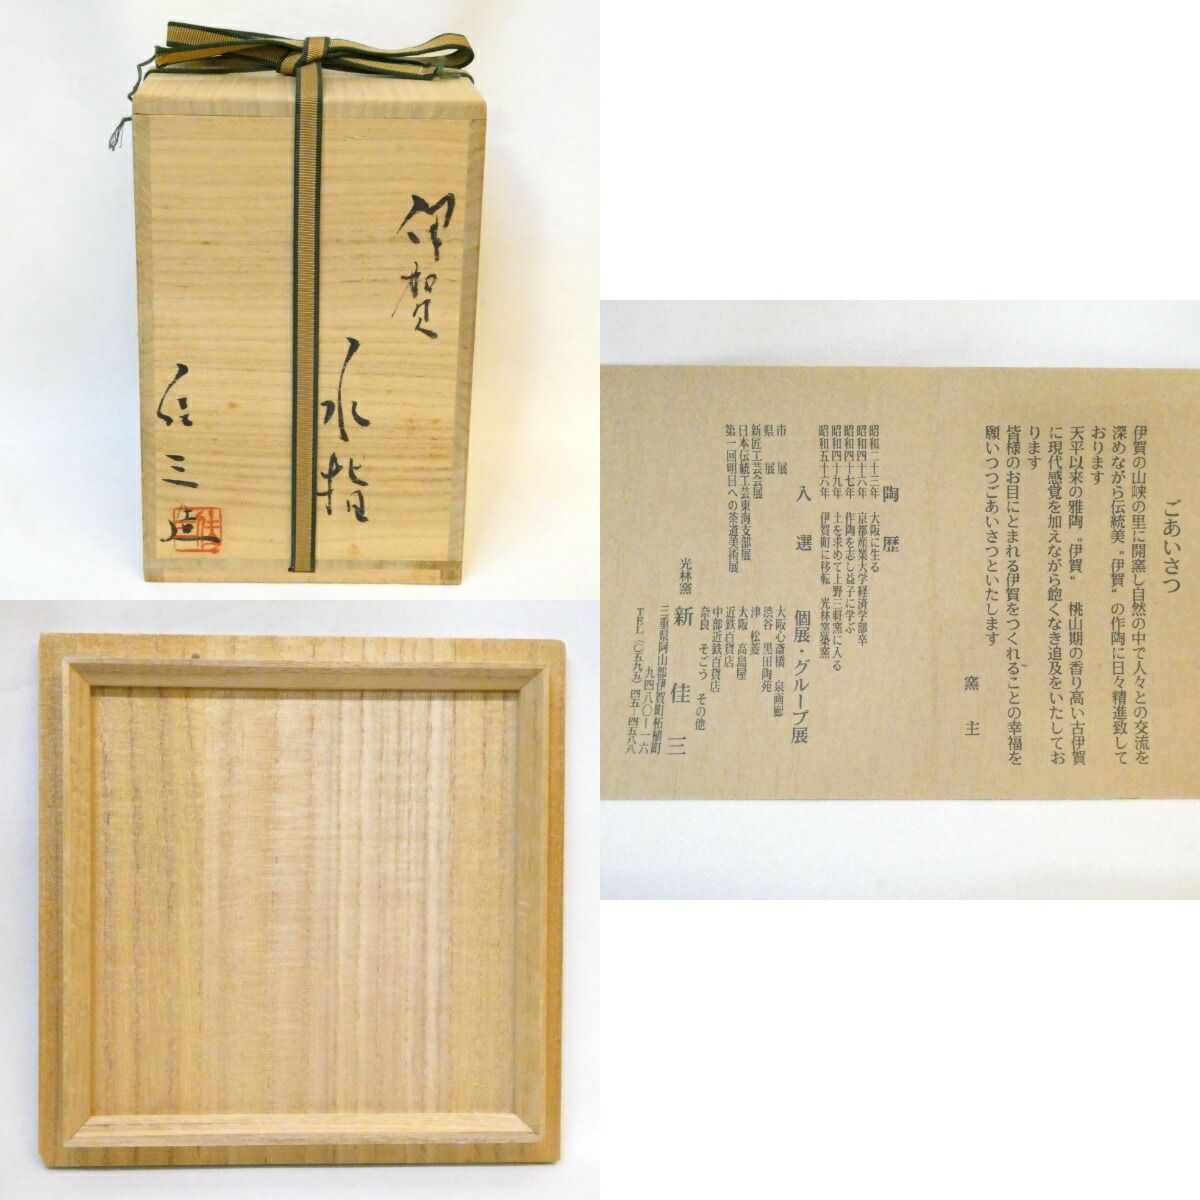 伊賀
水指
佳三造
佳
ごあいさつ
伊賀の山峡の里に開窯し自然の中で人々との交流を
深めながら伝統美〝伊賀〟の作陶に日々精進致して
おります
天平以来の雅陶〝伊賀〟桃山期の香り高い古伊賀
に現代感覚を加えながら飽くなき追及をいたしてお
ります
皆様のお目にとまれる伊賀をつくれることの幸福を
願いつつごあいさつといたします
窯主
陶歴
昭和二十三年 大阪に生る
昭和四十六年 京都産業大学経済学部卒
昭和四十七年 作陶を志し益子に学ぶ
昭和四十九年 土を求めて上野三軒窯に入る
昭和五十六年 伊賀町に移転 光林窯築窯
入選
市展
県展
新匠工芸会展
日本伝統工芸東海支部展
第一回明日への茶道美術展
個展・グループ展
大阪心斎橋 泉画廊
渋谷 黒田陶苑
津 松菱
大阪 高島屋
近鉄百貨店
中部近鉄百貨店
奈良 そごう その他
光林窯 新佳三
三重県阿山郡伊賀町柘植町
九四八〇ー一六
TEL(〇五九五)四五-四五八八